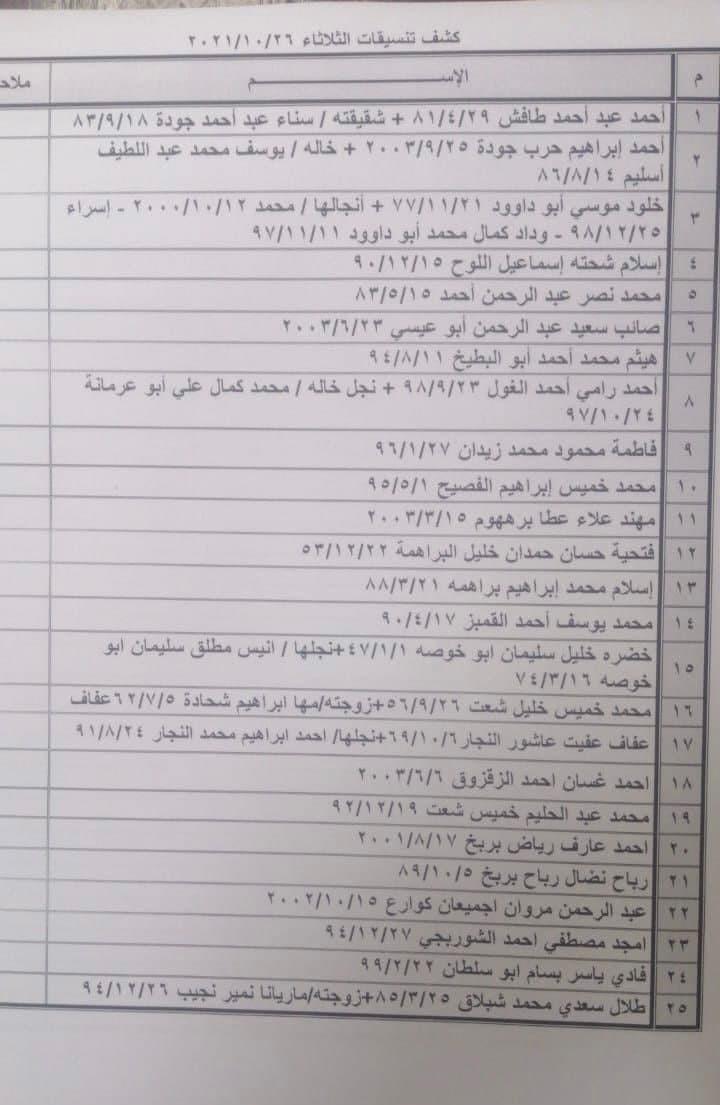 كشف تنسيقات الثلاثاء ٢٠٢١/١٠/٢٦
م الإســـــــم ملاحـ
١ أحمد عبد أحمد طافش ٨١/٤/٢٩ + شقيقته / سناء عبد أحمد جودة ٨٣/٩/١٨
٢ أحمد إبراهيم حرب جودة ٢٠٠٣/٩/٢٥ + خاله / يوسف محمد عبد اللطيف
أسليم ٨٦/٨/١٤
٣ خلود موسي أبو داوود ٧٧/١١/٢١ + أنجالها / محمد ٢٠٠٠/١٠/١٢ - إسراء
٩٨/١٢/٢٥ - وداد كمال محمد أبو داوود ٩٧/١١/١١
٤ إسلام شحته إسماعيل اللوح ٩٠/١٢/١٥
٥ محمد نصر عبد الرحمن أحمد ٨٣/٥/١٥
٦ صائب سعيد عبد الرحمن أبو عيسي ٢٠٠٣/٦/٢٣
٧ هيثم محمد أحمد أبو البطيخ ٩٤/٨/١١
٨ أحمد رامي أحمد الغول ٩٨/٩/٢٣ + نجل خاله / محمد كمال علي أبو عرمانة
٩٧/١٠/٢٤
٩ فاطمة محمود محمد زيدان ٩٦/١/٢٧
١٠ محمد خميس إبراهيم الفصيح ٩٥/٥/١
١١ مهند علاء عطا برههوم ٢٠٠٣/٣/١٥
١٢ فتحية حسان حمدان خليل البراهمة ٥٣/١٢/٢٢
١٣ إسلام محمد إبراهيم براهمه ٨٨/٣/٢١
١٤ محمد يوسف أحمد القمبز ٩٠/٤/١٧
١٥ خضره خليل سليمان ابو خوصه ٤٧/١/١+نجلها / انيس مطلق سليمان ابو
خوصه ٧٤/٣/١٦
١٦ محمد خميس خليل شعت ٥٦/٩/٢٦+زوجته/مها ابراهيم شحادة ٦٢/٧/٥عفاف
١٧ عفاف عفيت عاشور النجار٦٩/١٠/٦+نجلها/ احمد ابراهيم محمد النجار ٩١/٨/٢٤
١٨ احمد غسان احمد الزقزوق ٢٠٠٣/٦/٦
١٩ محمد عبد الحليم خميس شعت ٩٢/١٢/١٩
٢٠ احمد عارف رياض بربخ ٢٠٠١/٨/١٧
٢١ رباح نضال رباح بربخ ٨٩/١٠/٥
٢٢ عبد الرحمن مروان اجميعان كوارع ٢٠٠٢/١٠/١٥
٢٣ امجد مصطفي احمد الشوربجي ٩٤/١٢/٢٧
٢٤ فادي ياسر بسام ابو سلطان ٩٩/٢/٢٢
٢٥ طلال سعدي محمد شبلاق ٨٥/٣/٢٥+زوجته/ماريانا نمير نجيب ٩٤/١٢/٢٦